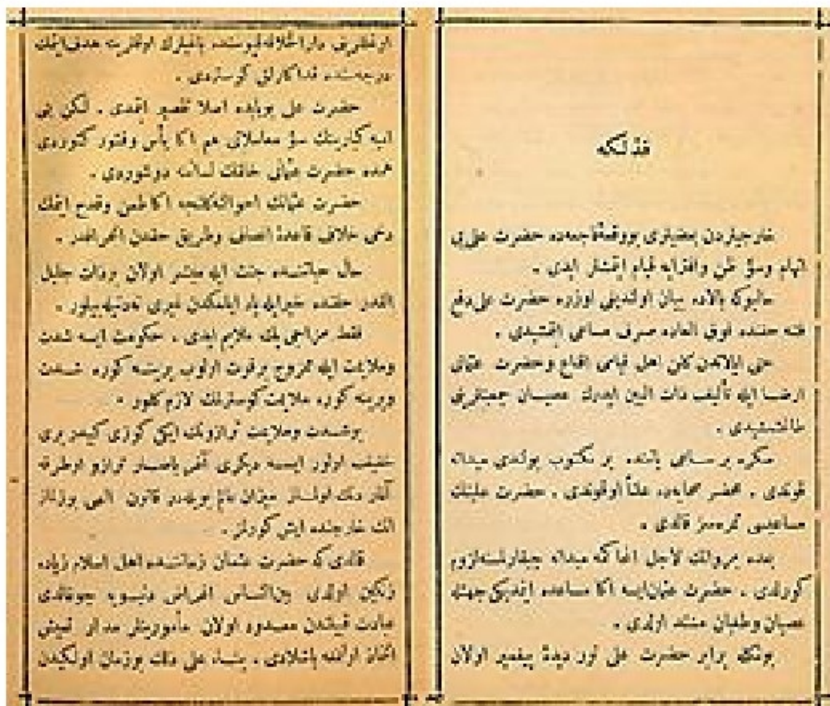 فذلكه
خارجيلردن بعضيلرى بو وقعهٔ فاجعه‌ده حضرت على‌يى
اتهام وسؤ ظن وافترايه قيام ايتمشلر ايدى .
حالبوكه بالاده بيان اولنديغى اوزره حضرت على دفع
فتنه حقنده فوق العاده صرف مساعى ايتمشيدى .
حتى ايالاتدن كلن اهل قيامى اقناع وحضرت عثمانى
ارضا ايله تأليف ذات البين ايدرك عصيان جمعيتلرينى
طاغتمشيدى .
صكره بر ساعى يأننده بر مكتوب بولندى ميدانه
قوندى . محضر صحابه‌ده علناً اوقوندى . حضرت علينك
مساعيسى ثمره‌سز قالدى .
بعده مروانك لاجل المحاكمه ميدانه چيقارلمسنه لزوم
كورلدى . حضرت عثمان ايسه اكا مساعده ايتمديكى جهتله
عصيان وطغيان ممتد اولدى .
بونكله برابر حضرت على نور ديدهٔ پيغمبر اولان
اوغللرينى دار الخلافه قپوسنده باغيلرك اوقلرينه هدف ايتمك
درجه‌سنده فداكارلق كوستردى .
حضرت على بوبابده اصلا تقصير ايتمدى . لكن بنى
اميه كبارينك سؤ معاملاتى هم اكا يأس وفتور كتوردى
همده حضرت عثمانى خلقك لسانه دوشوردى .
حضرت عثمانك احوالنه كلنجه اكا طعن وقدح ايتمك
دخى خلاف قاعدهٔ انصاف وطريق حقدن انحرافدر .
حال حياتنده جنت ايله مبشر اولان بر ذات جليل
القدر حقنده خير ايله ياد ايلمكدن غيرى نه دينيله‌بيلور .
فقط مزاجى پك ملايم ايدى . حكومت ايسه شدت
وملايمت ايله ممزوج بر قوت اولوب يرينه كوره شدت
ويرينه كوره ملايمت كوسترمك لازم كلور .
بو شدت وملايمت ترازونك ايكى كوزى كبيدر برى
خفيف اولور ايسه ديكرى آغر باصار ترازو او طرفه
آغار دنك اولماز ميزان عالم بويله‌در قانون الهى بوزلماز
انك خارجنده ايش كورلمز .
قالدى كه حضرت عثمان زماننده اهل اسلام زياده
زنكين اولدى بين الناس اغراض دنيويه چوغالدى
عبادت قبيلندن معدود اولان مأموريتلر مدار تعيش
اتخاذ اولنمغه باشلادى . بناء عليه ذلك بو زمان اولكيدن